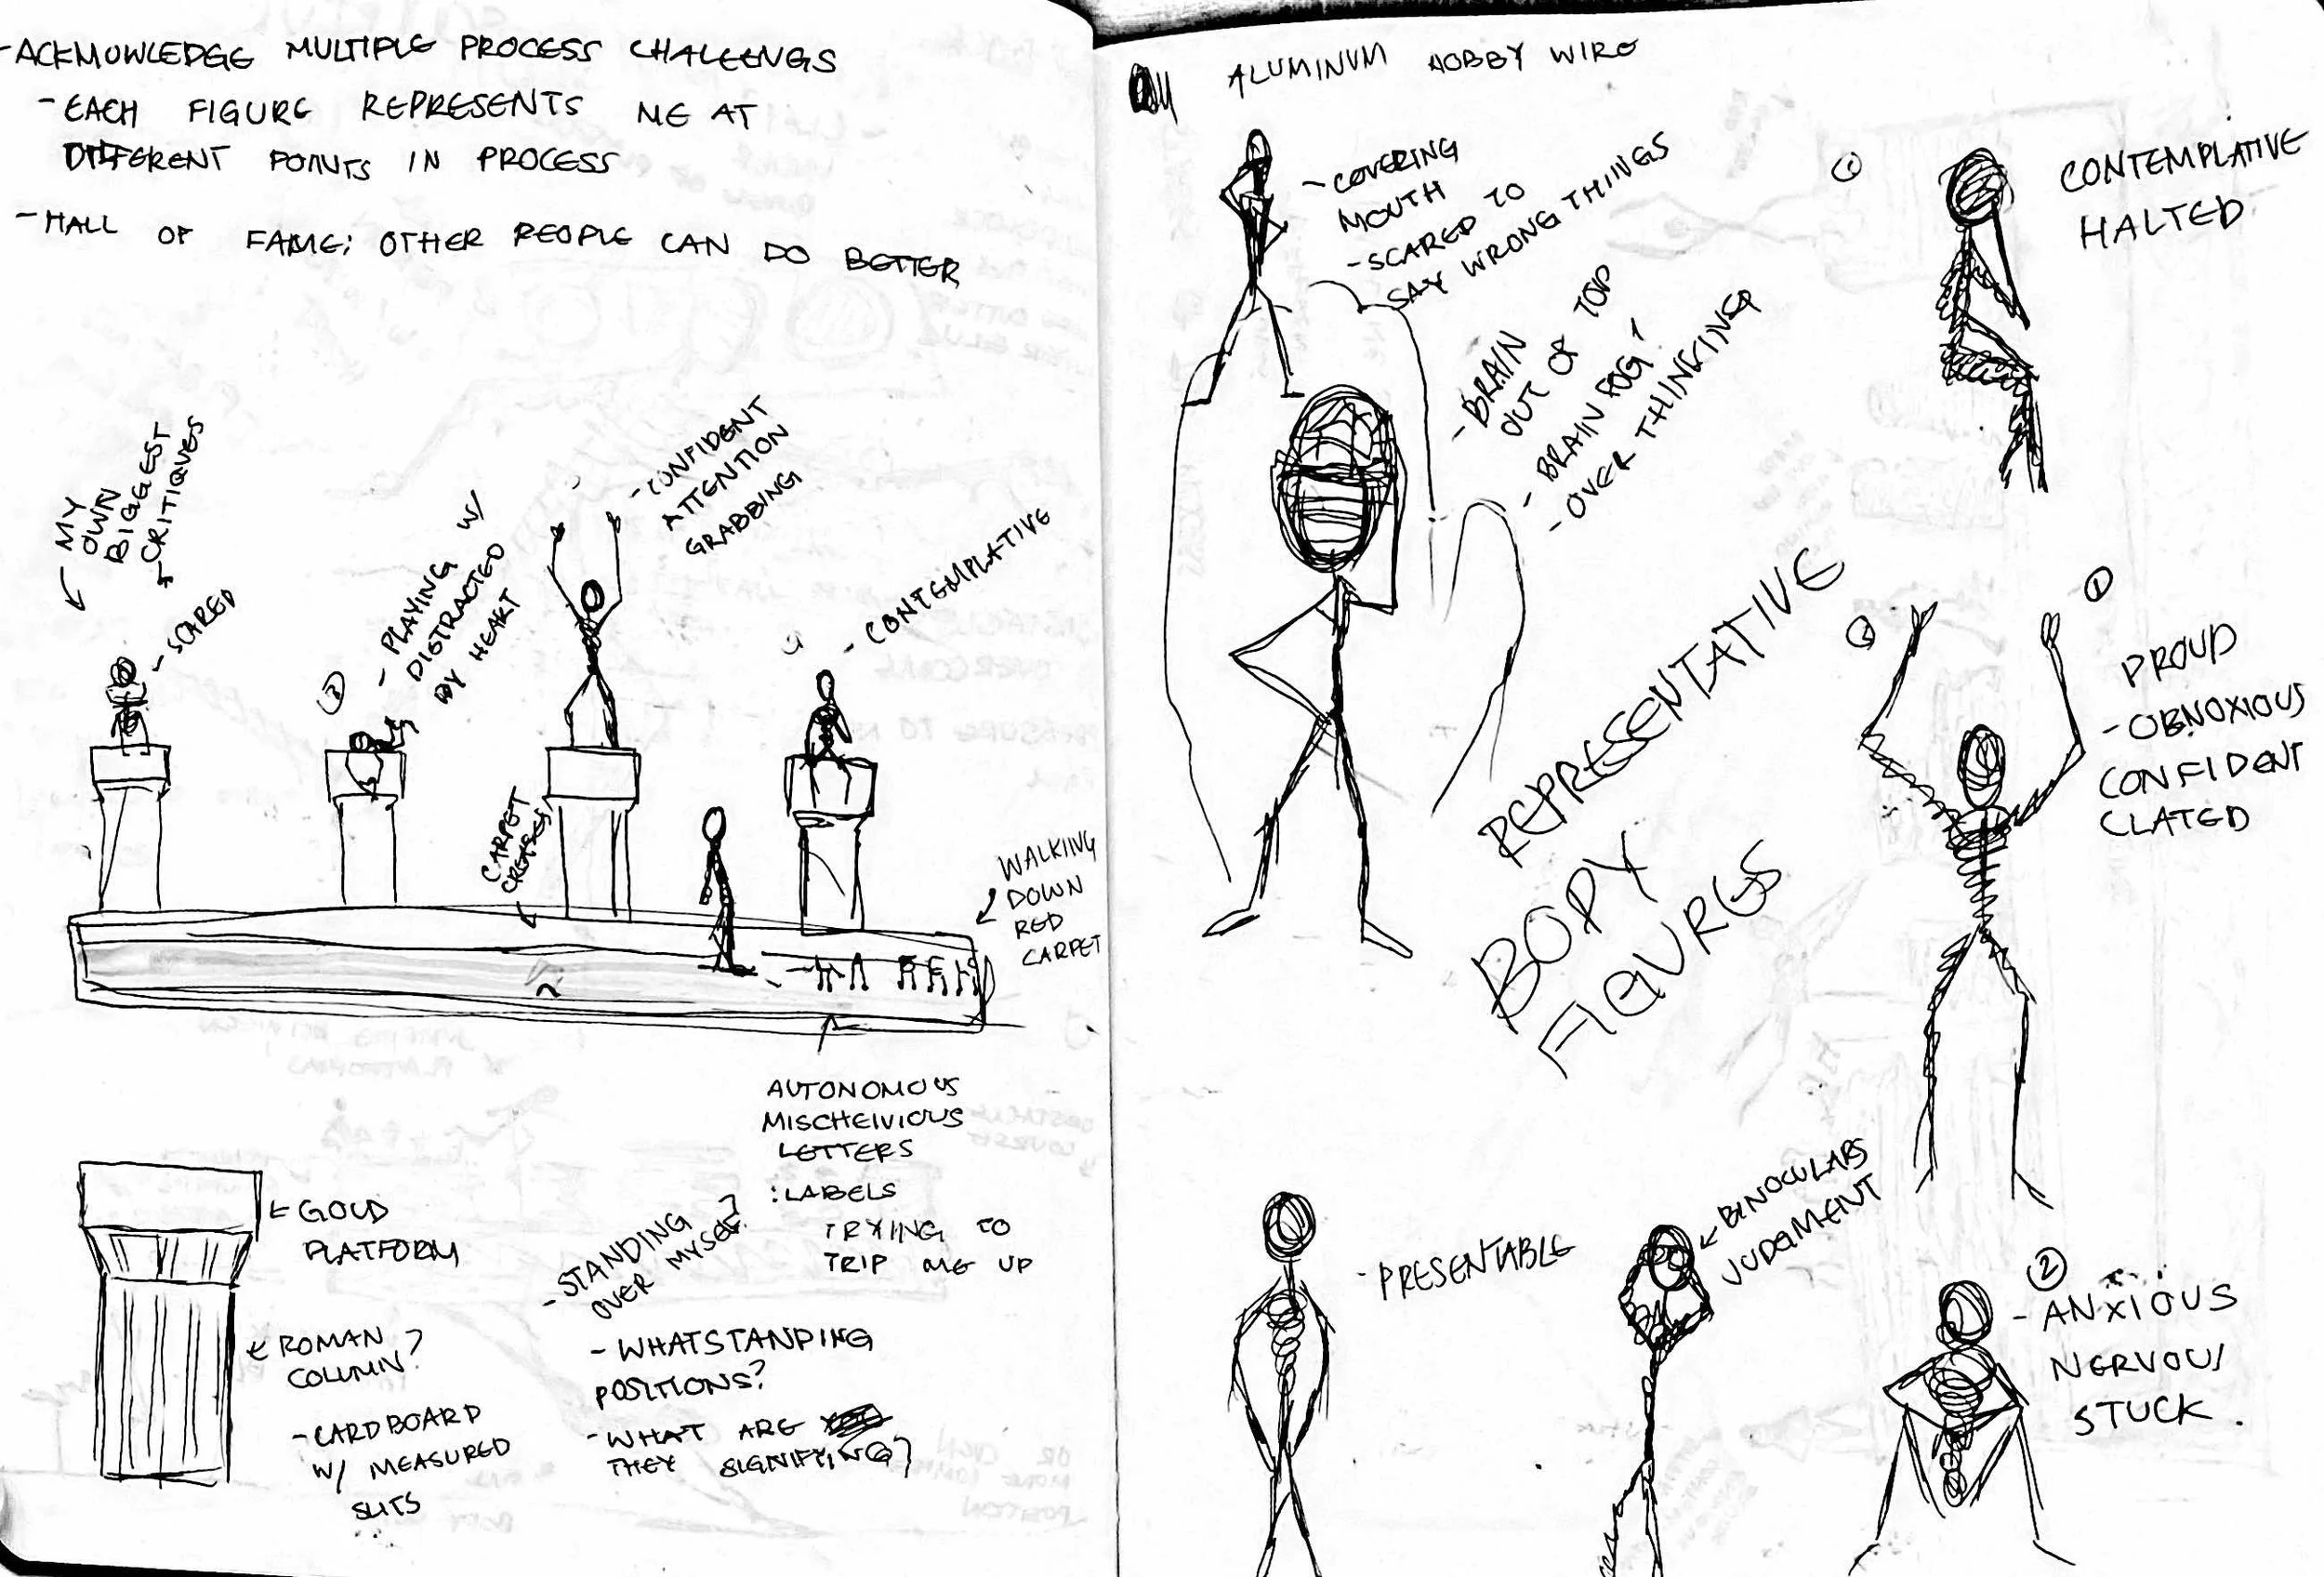 -ACKNOWLEDGE MULTIPLE PROCESS CHALEENGS
-EACH FIGURE REPRESENTS ME AT
DIFFERENT POINTS IN PROCESS
-HALL OF FAME; OTHER PEOPLE CAN DO BETTER
MY
OWN
BIGGEST
CRITIQUES
-SCARED
3
-PLAYING W/
DISTRACTED
BY HEART
-CONFIDENT
ATTENTION
GRABBING
-CONTEMPLATIVE
CARPET
CREASES
WALKING
DOWN
RED
CARPET
AUTONOMOUS
MISCHEIVIOUS
LETTERS
:LABELS
TRYING TO
TRIP ME UP
GOLD
PLATFORM
ROMAN
COLUMN?
-CARDBOARD
W/ MEASURED
SLITS
-STANDING
OVER MYSELF?
-WHAT STANDING
POSITIONS?
-WHAT ARE
THEY SIGNIFYING?
ALUMINUM HOBBY WIRE
-COVERING
MOUTH
-SCARED TO
SAY WRONG THINGS
-BRAIN
OUT OF TOP
-BRAIN FOG!
-OVER THINKING
REPRESENTATIVE
BODY
FIGURES
CONTEMPLATIVE
HALTED
1
PROUD
-OBNOXIOUS
CONFIDENT
ELATED
-PRESENTABLE
BINOCULARS
JUDGMENT
2
-ANXIOUS
NERVOUS
STUCK.